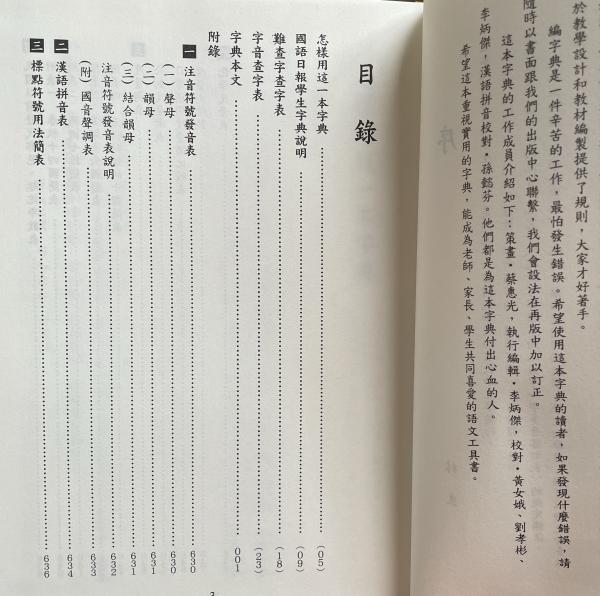 於教學設計和教材編製提供了規則，大家才好著手。
編字典是一件辛苦的工作，最怕發生錯誤。希望使用這本字典的讀者，如果發現什麼錯誤，請
隨時以書面跟我們的出版中心聯繫，我們會設法在再版中加以訂正。
這本字典的工作成員介紹如下：策畫・蔡惠光，執行編輯・李炳傑，校對・黃女娥、劉孝彬、
李炳傑，漢語拼音校對・孫懿芬。他們都是為這本字典付出心血的人。
希望這本重視實用的字典，能成為老師、家長、學生共同喜愛的語文工具書。
目錄
怎樣用這一本字典……(05)
國語日報學生字典說明……(09)
難查字查字表……(18)
字音查字表……(23)
字典本文……001
附錄
一 注音符號發音表……630
(一)聲母……630
(二)韻母……631
(三)結合韻母……631
注音符號發音表說明……632
(附)國音聲調表……633
二 漢語拼音表……634
三 標點符號用法簡表……636